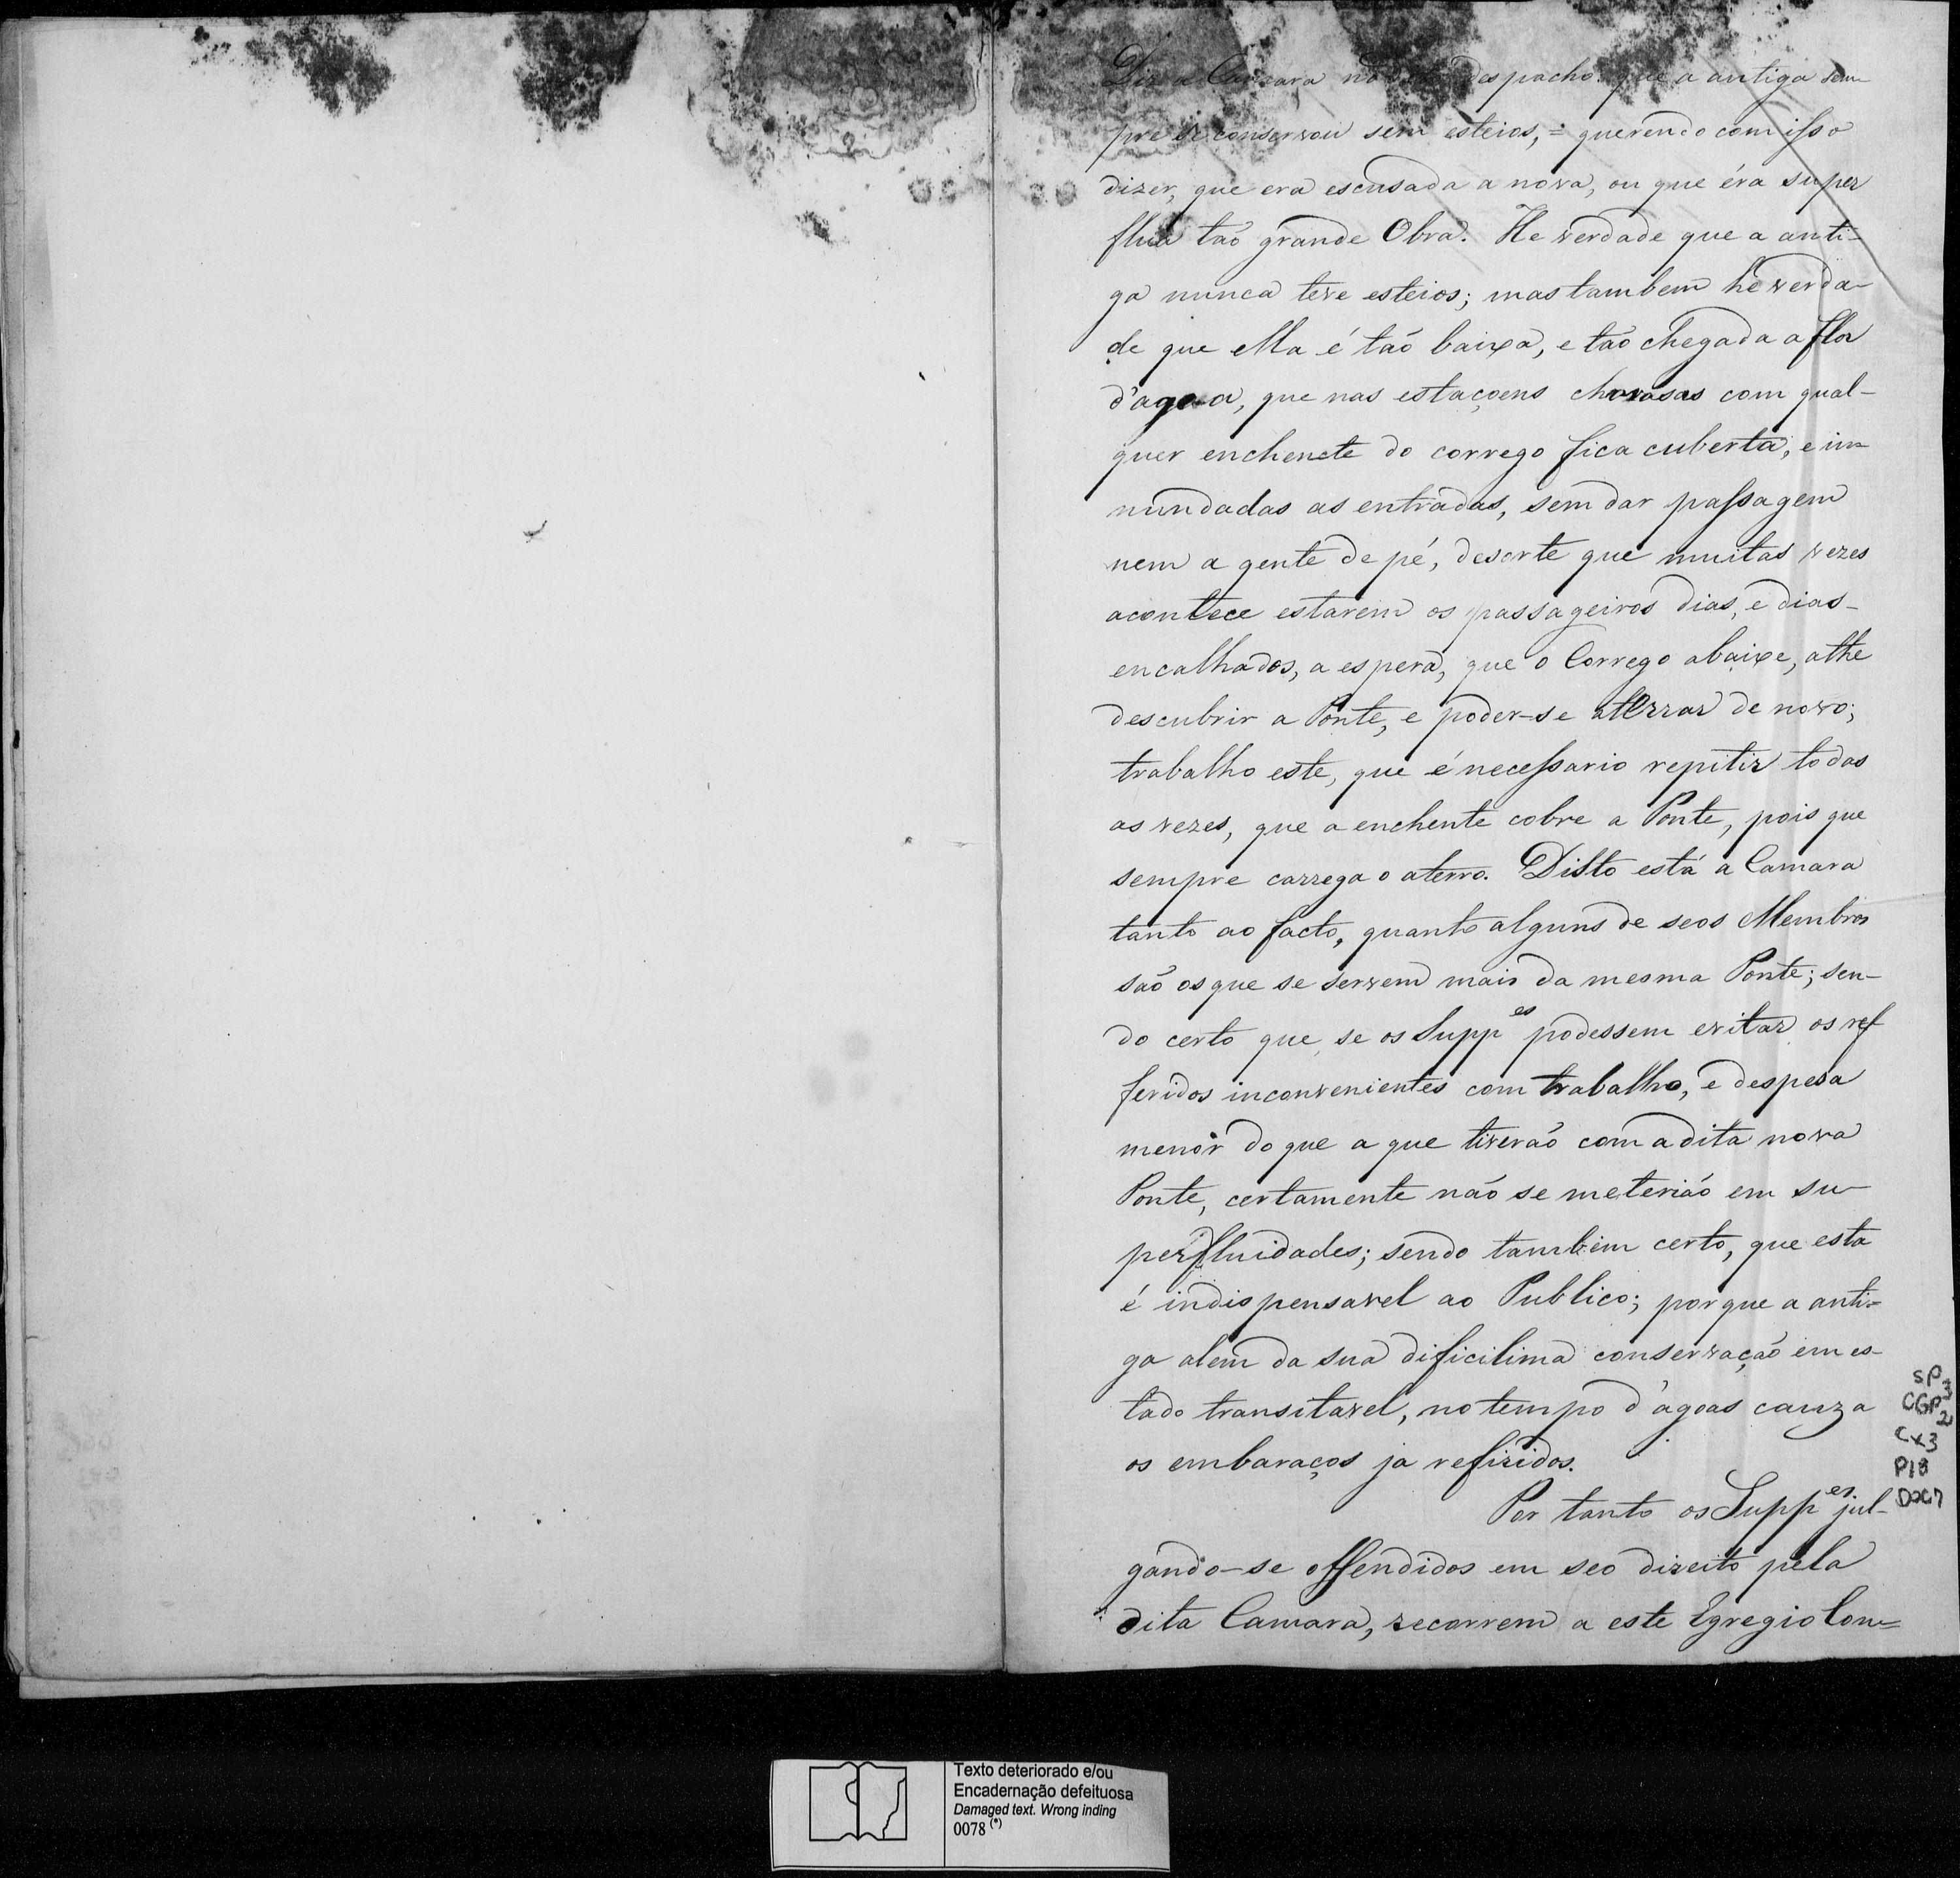 Diz a Camara no seo despacho: que a antiga sem
pre se conservou sem esteios, = querendo com isso
dizer, que era escusada a nova, ou que éra super
flua taõ grande Obra. He verdade que a anti-
ga nunca teve esteios; mas tambem hé verda-
de que ella é taõ baixa, e taõ chegada a flor
d'agoa, que nas estaçoens chovosas com qual-
quer enchente do corrego fica cuberta, e in-
nundadas as entradas, sem dar passagem
nem a gente de pé, desorte que muitas vezes
acontece estarem os passageiros dias, e dias-
encalhados, a espera, que o Corrego abaixe, athe
descubrir a Ponte, e poder-se aterrar de novo;
trabalho este, que é necessario repitir todas
as vezes, que a enchente cobre a Ponte, pois que
sempre carrega o aterro. Disto está a Camara
tanto ao facto, quanto alguns de seos Membros
saõ os que se servem mais da mesma Ponte; sen-
do certo que, se os Supp.es podessem evitar os ref
feridos inconvenientes com trabalho, e despesa
menor do que a que tiveraõ com a dita nova
Ponte, certamente naõ se meteriaõ em su-
perfluidades; sendo tambem certo, que esta
é indispensavel ao Publico; por que a anti=
ga alem da sua dificilima conservaçaõ em es-
tado transitavel, no tempo d'agoas cauza
os embaraços ja refiridos.
Por tanto os Supp.es jul-
gando-se offendidos em seo direito pela
dita Camara, recorrem a este Egregio Con=
SP
CGP3
2
Cx3
P18
Doc7
Texto deteriorado e/ou
Encadernação defeituosa
Damaged text. Wrong inding
0078 (*)